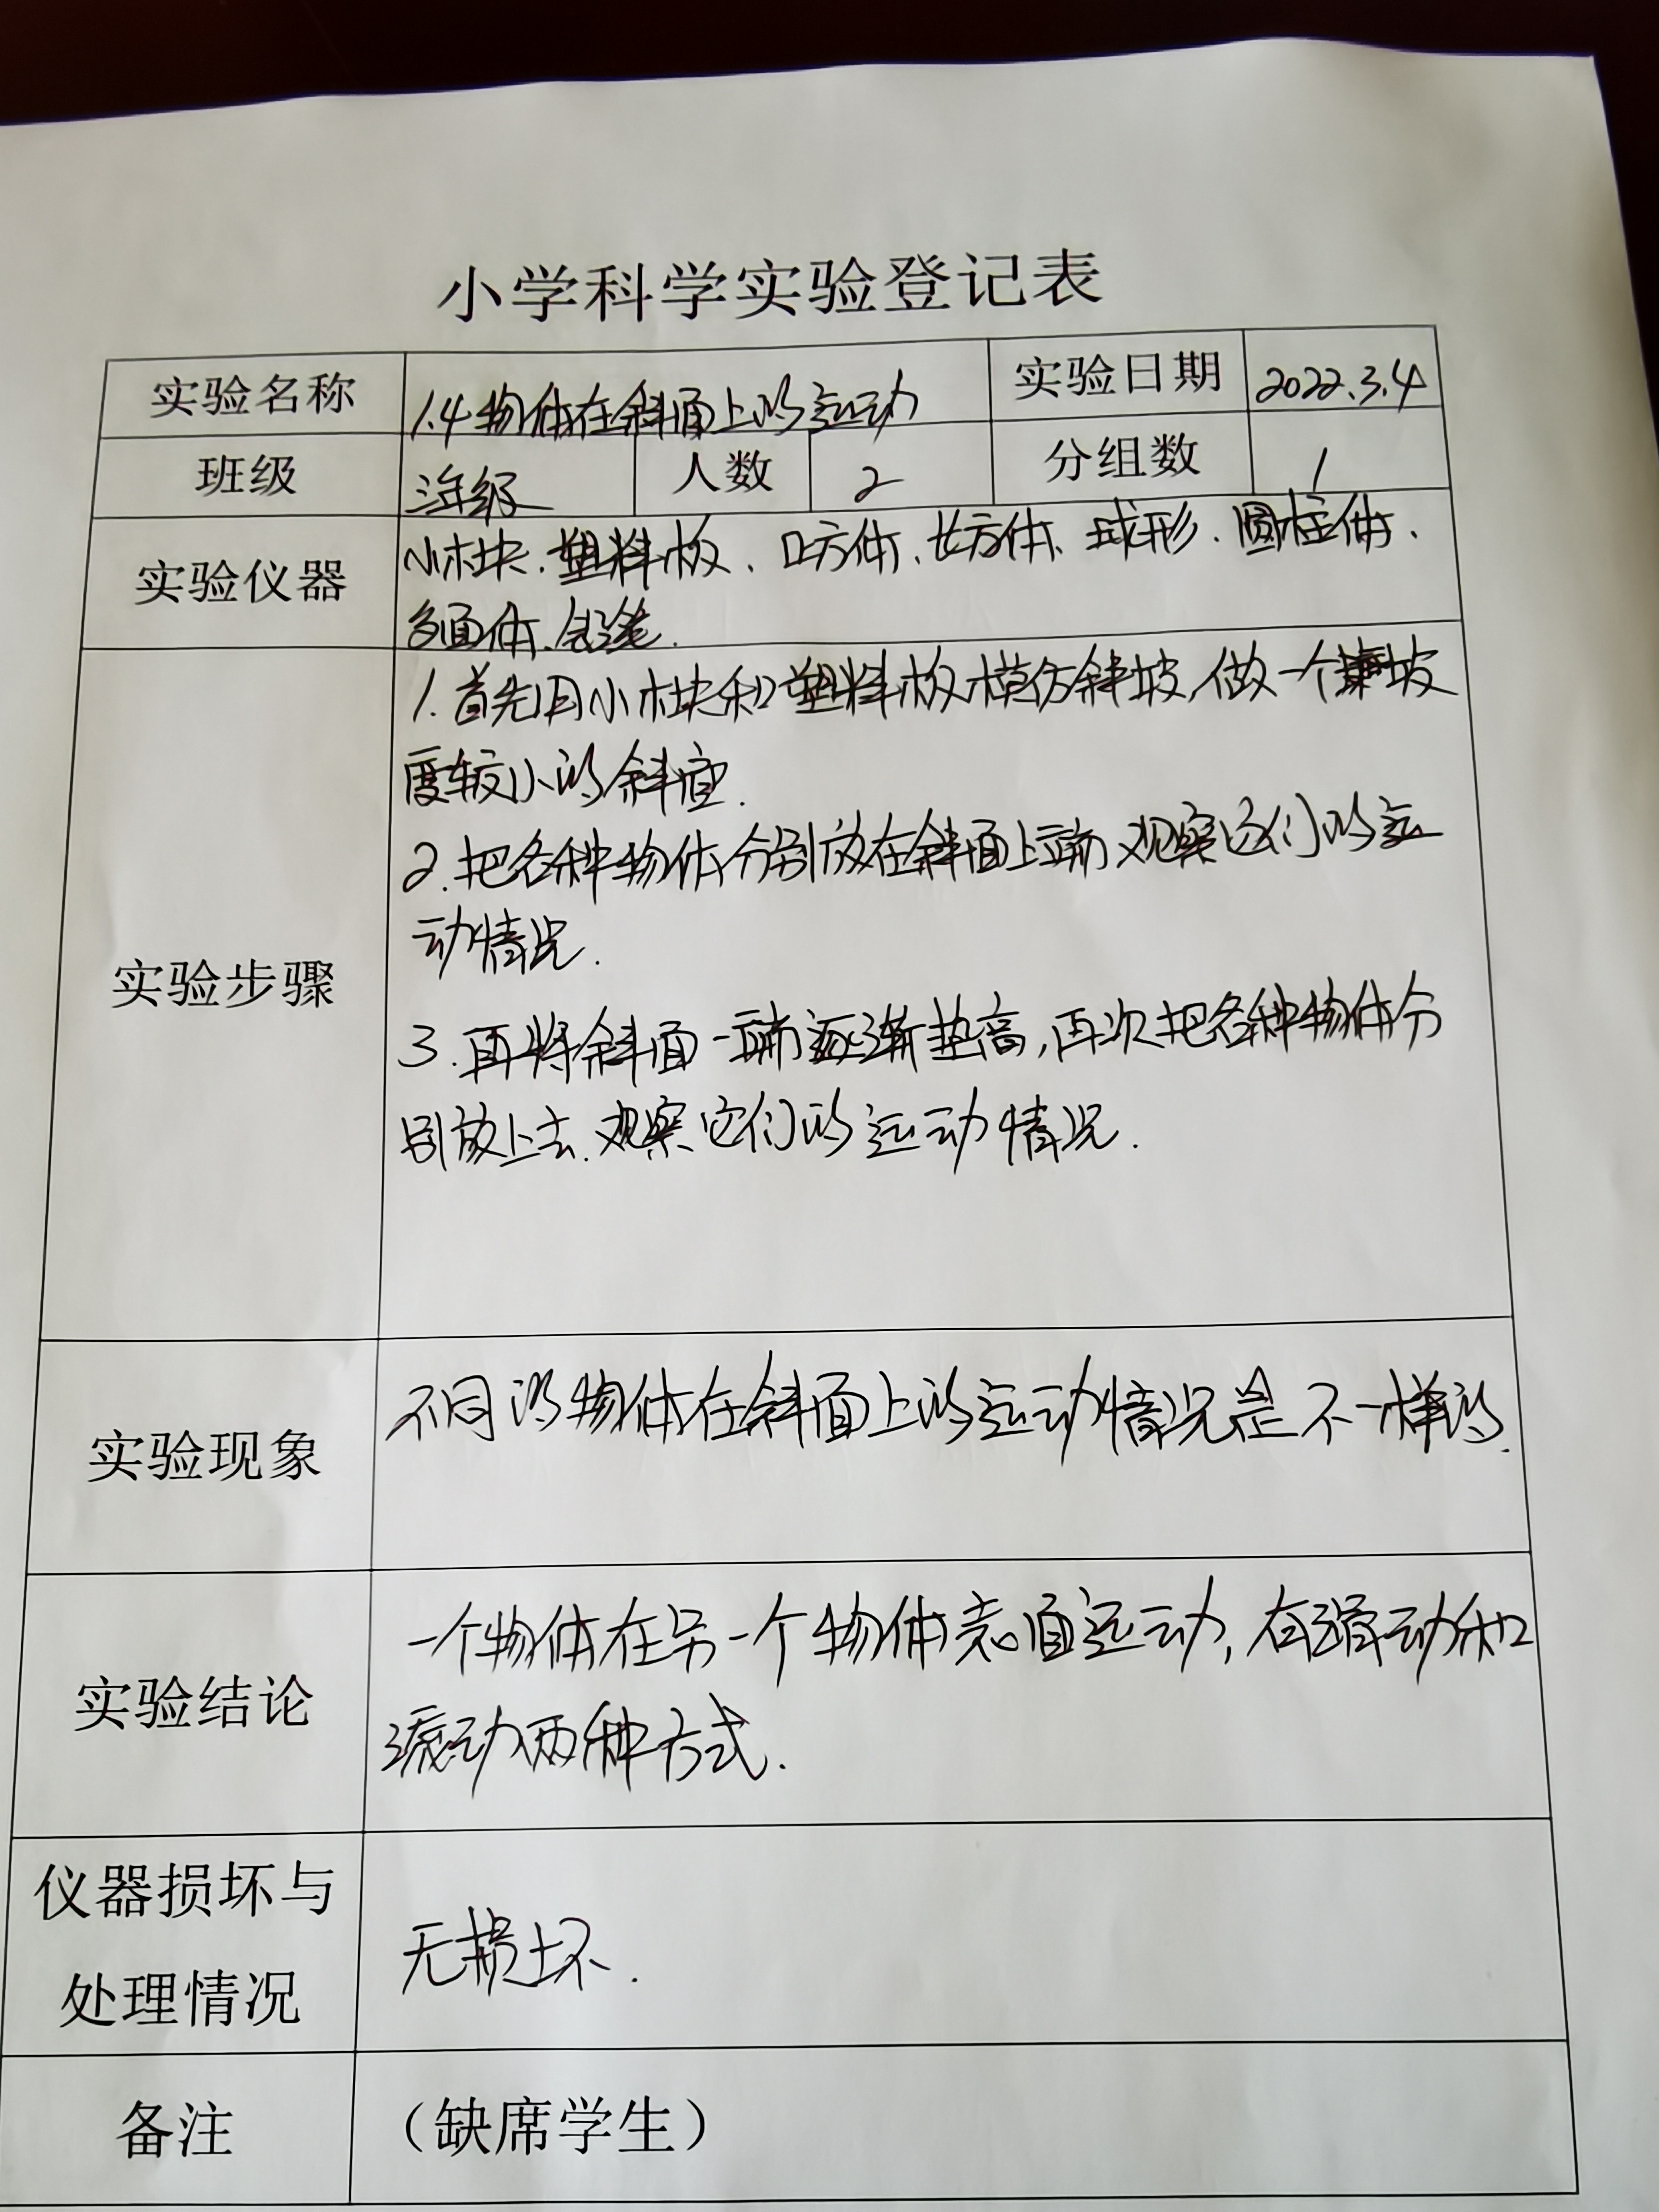 小学科学实验登记表
实验名称 1.4物体在斜面上的运动 实验日期 2022.3.4
班级 三年级 人数 2 分组数 1
实验仪器
小木块、塑料板、口方体、长方体、球形、圆柱体、
多面体、铅笔.
实验步骤
1.首先用小木块和塑料板模仿斜坡,做一个坡
度较小的斜面.
2.把各种物体分别放在斜面上端观察它们的运
动情况.
3.再将斜面一端逐渐垫高,再次把各种物体分
别放上去.观察它们的运动情况.
实验现象
不同的物体在斜面上的运动情况是不一样的.
实验结论
一个物体在另一个物体表面运动,有滑动和
滚动两种方式.
仪器损坏与
处理情况
无损坏.
备注 (缺席学生)